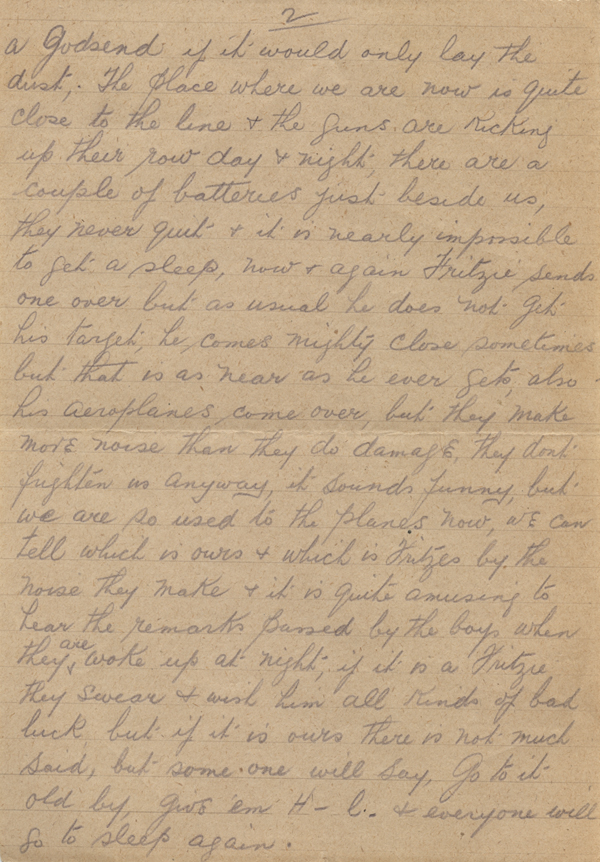 2
a Godsend if it would only lay the
dust,. The place where we are now is quite
close to the line & the guns are kicking
up their row day & night, there are a
couple of batteries just beside us,
they never quit & it is nearly impossible
to get a sleep, now & again Fritzie sends
one over but as usual he does not get
his target, he comes mighty close sometimes
but that is as near as he ever gets, also
his aeroplanes come over, but they make
more noise than they do damage, they dont
frighten us anyway, it sounds funny, but
we are so used to the planes now, we can
tell which is ours & which is Fritzes by the
noise they make & it is quite amusing to
hear the remarks passed by the boys when
they are woke up at night, if it is a Fritzie
they swear & wish him all kinds of bad
luck but if it is ours there is not much
said, but some one will say, Go to it
old by give em H - l. & everyone will
go to sleep again.